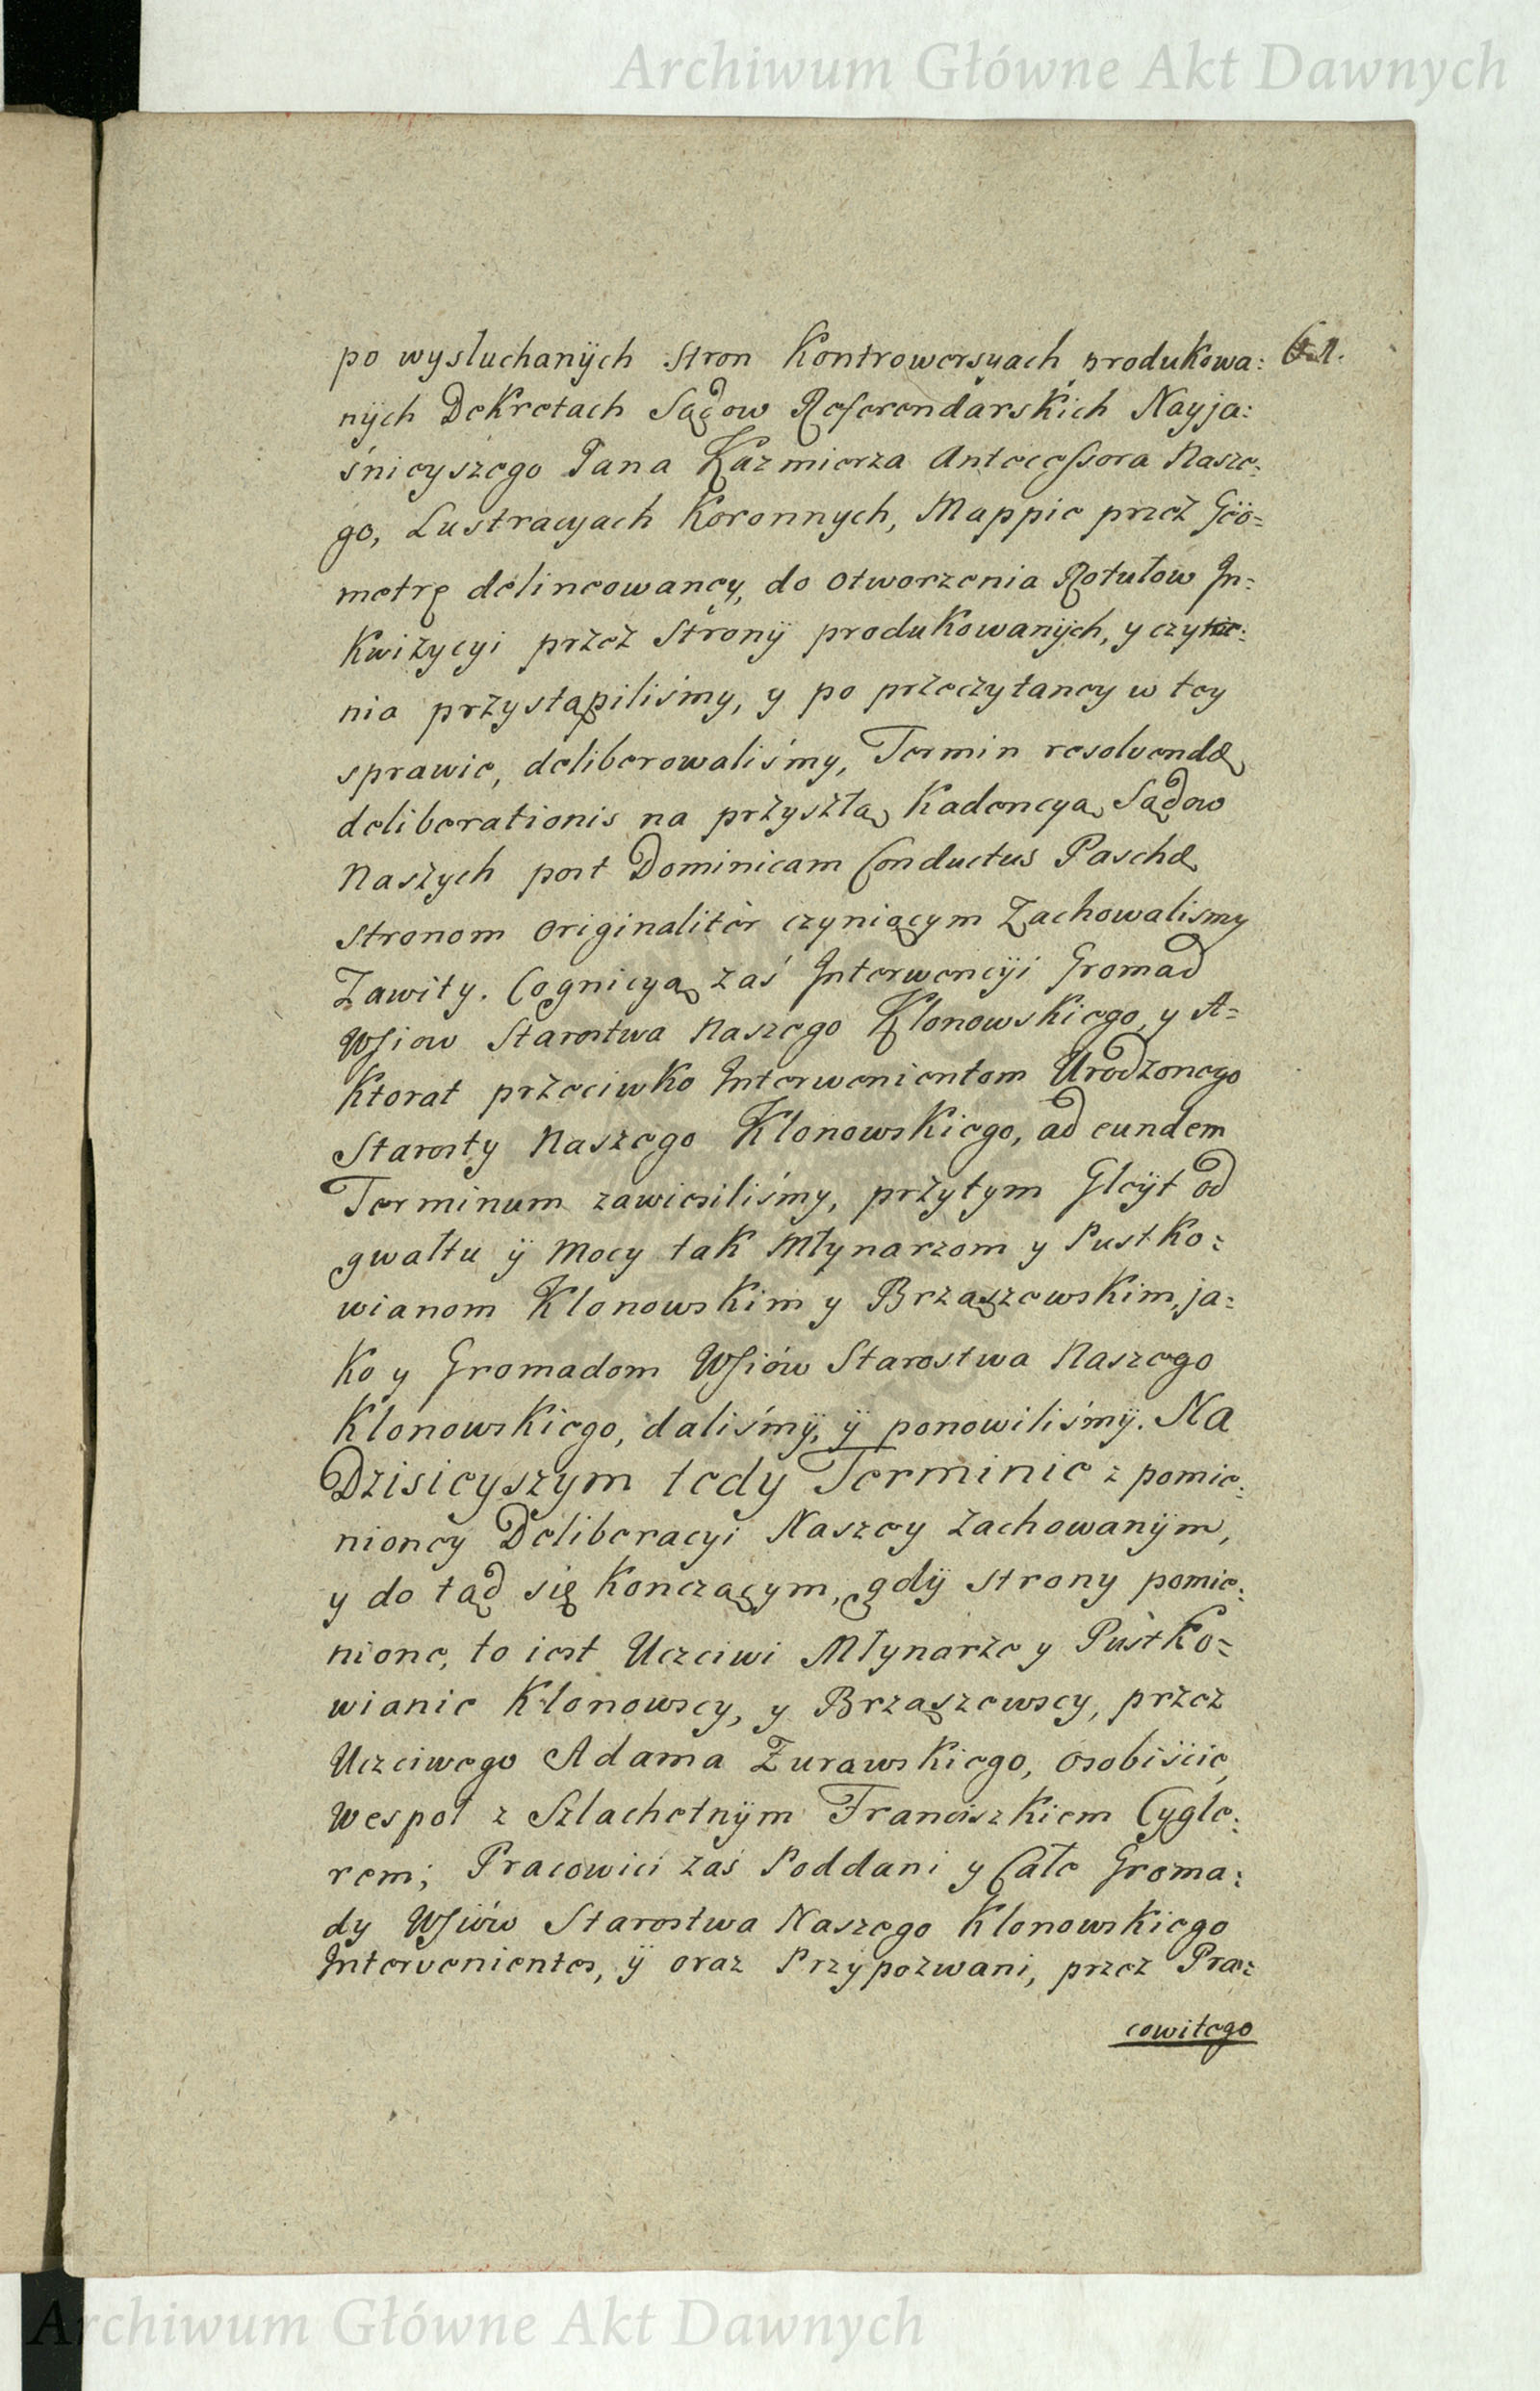 Archiwum Główne Akt Dawnych
po wysłuchanÿch Stron Kontrowersyach produkowa:
nÿch DeKretach Sądow Referendarskich Nayja:
śnieyszego Pana Kazmierza Antecessora Nasze:
go, Lustracyach Koronnych, Mappie przez Geo=
metrę delineowaney, do otworzenia Rotułow In=
Kwizycyi przez Stronÿ produKowanÿch, y czyta:
nia przystąpiliśmy, y po przeczytaney w tey
sprawie, deliberowaliśmy, Termin resolvendæ
deliberationis na przyszłą Kadencyą Sądow
Naszych post Dominicam Conductus Paschæ
stronom originalitèr czyniącym Zachowalismy
Zawity. Cognicyą zaś Interwencÿi Gromad
Wsiow Starostwa Naszego Klonowskiego, y A=
Ktorat przeciwko Interwenientom Urodzonego
Starosty Naszego Klonowskiego, ad eundem
Terminum zawiesiliśmy, przytym Gleÿt od
gwałtu ÿ Mocy tak Młynarzom y PustKo=
wianom Klonowskim y Brząszewskim, ja:
Ko y Gromadom Wsiów Starostwa Naszego
Klonowskiego, daliśmÿ, ÿ ponowiliśmÿ. Na
Dzisieyszym tedy Terminie z pomie:
nioney Deliberacyi Naszey zachowanÿm,
y do tąd się Kończącym, gdÿ strony pomie:
nione, to iest Uczciwi Młynarze y PustKo=
wianie Klonowscy, y Brząszewscy, przez
Uczciwego Adama Zurawskiego, osobiście,
Wespoł z Szlachetnÿm Franciszkiem Cygle:
rem; Pracowici zaś Poddani y Całe Groma:
dy Wsiów Starostwa Naszego Klonowskiego
Intervenientes, ÿ oraz Przypozwani, przez Pra=
cowitego
Archiwum Główne Akt Dawnych